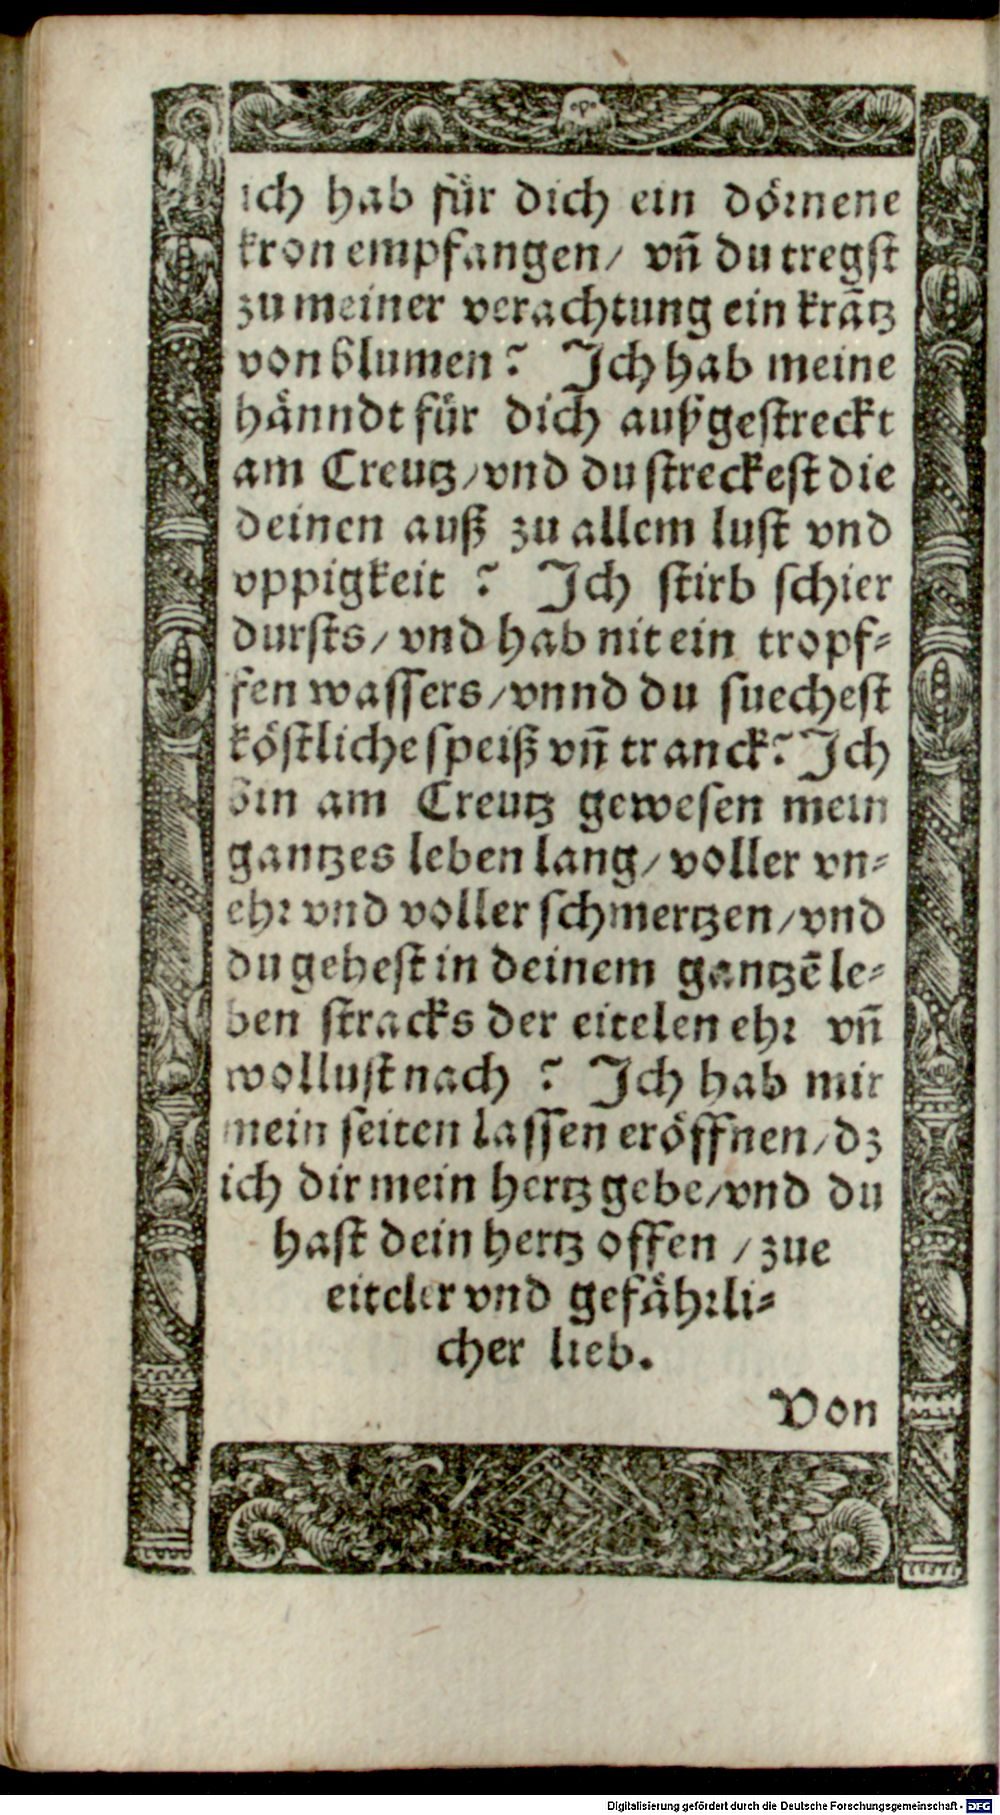 ich hab für dich ein dörnene
kron empfangen/ vñ du tregst
zu meiner verachtung ein krätz
von blumen? Ich hab meine
hänndt für dich außgestreckt
am Creutz/vnd du streckest die
deinen auß zu allem lust vnd
vppigkeit ? Ich stirb schier
dursts/ vnd hab nit ein tropf⸗
fen wassers/vnnd du suechest
köstliche speiß vñ tranck? Ich
bin am Creutz gewesen mein
gantzes leben lang/ voller vn⸗
ehr vnd voller schmertzen/vnd
du gehest in deinem gantzē le⸗
ben stracks der eitelen ehr vñ
wollust nach ? Ich hab mir
mein seiten lassen eröffnen/dz
ich dir mein hertz gebe/vnd du
hast dein hertz offen / zue
eiteler vnd gefährli⸗
cher lieb.
Von
Digitalisierung gefördert durch die Deutsche Forschungsgemeinschaft - DFG